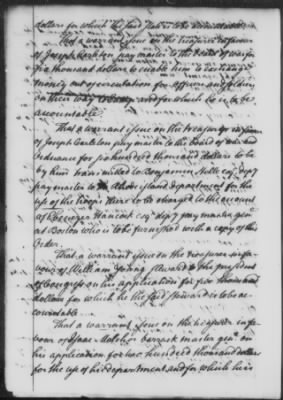 dollars for which the said is to be accountable
That a warrant issue on the treasurer in favour
of Joseph Carleton pay master to the board of war for
six thousand dollars to enable him to exchange
money out of circulation for officers and soldiers
on their way to and for which he is to be
accountable.
That a warrant issue on the treasurer in favour
of Joseph Carleton pay master to the board of war and
Ordnance for six hundred thousand dollars to be
by him transmitted to Benjamin Esqr. depy
pay master to Rhode island department for the
use of the troops there to be charged to the account
of Ebenezer Hancock Esqr. depy pay master genl.
at Boston who is to be furnished with a copy of this
Order.
That a warrant issue on the treasurer in fa-
vour of William Young steward to the president
of congress on his application for five thousand
dollars for which he the said steward is to be ac-
countable
That a warrant issue on the treasurer in fa-
vour of Isaac Melchior barrack master genl. on
his application for two hundred thousand dollars
for the use of his department and for which he is